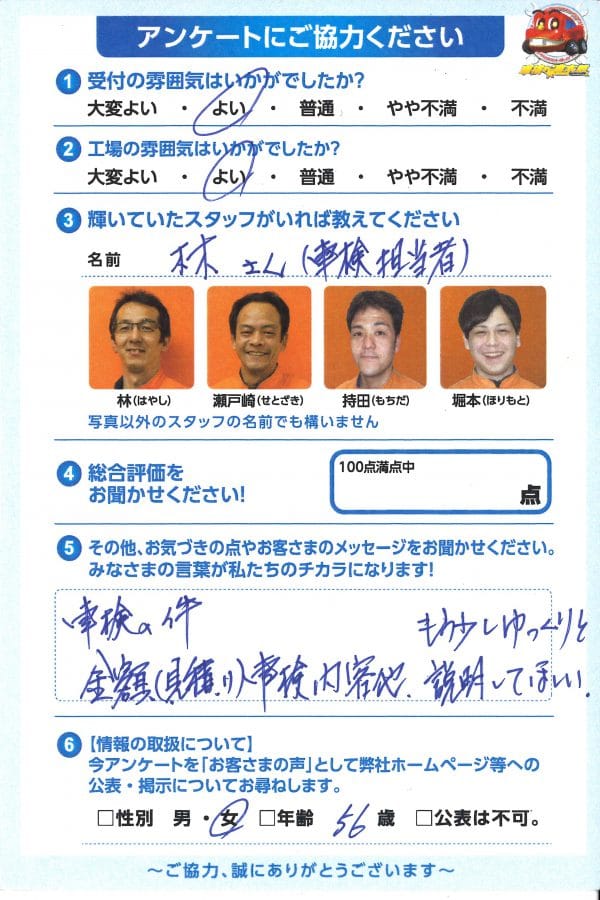 アンケートにご協力ください
1 受付の雰囲気はいかがでしたか?
大変よい ・ よい ・ 普通 ・ やや不満 ・ 不満
2 工場の雰囲気はいかがでしたか?
大変よい ・ よい ・ 普通 ・ やや不満 ・ 不満
3 輝いていたスタッフがいれば教えてください
名前 林 さん(車検担当者)
林(はやし) 瀬戸崎(せとざき) 持田(もちだ) 堀本(ほりもと)
写真以外のスタッフの名前でも構いません
4 総合評価を
お聞かせください!
100点満点中
点
5 その他、お気づきの点やお客さまのメッセージをお聞かせください。
みなさまの言葉が私たちのチカラになります!
車検の件 もう少しゆっくりと
金額(見積り)車検内容他、説明してほしい。
6 【情報の取扱について】
今アンケートを「お客さまの声」として弊社ホームページ等への
公表・掲示についてお尋ねします。
□性別 男・女 □年齢 56 歳 □公表は不可。
〜ご協力、誠にありがとうございます〜